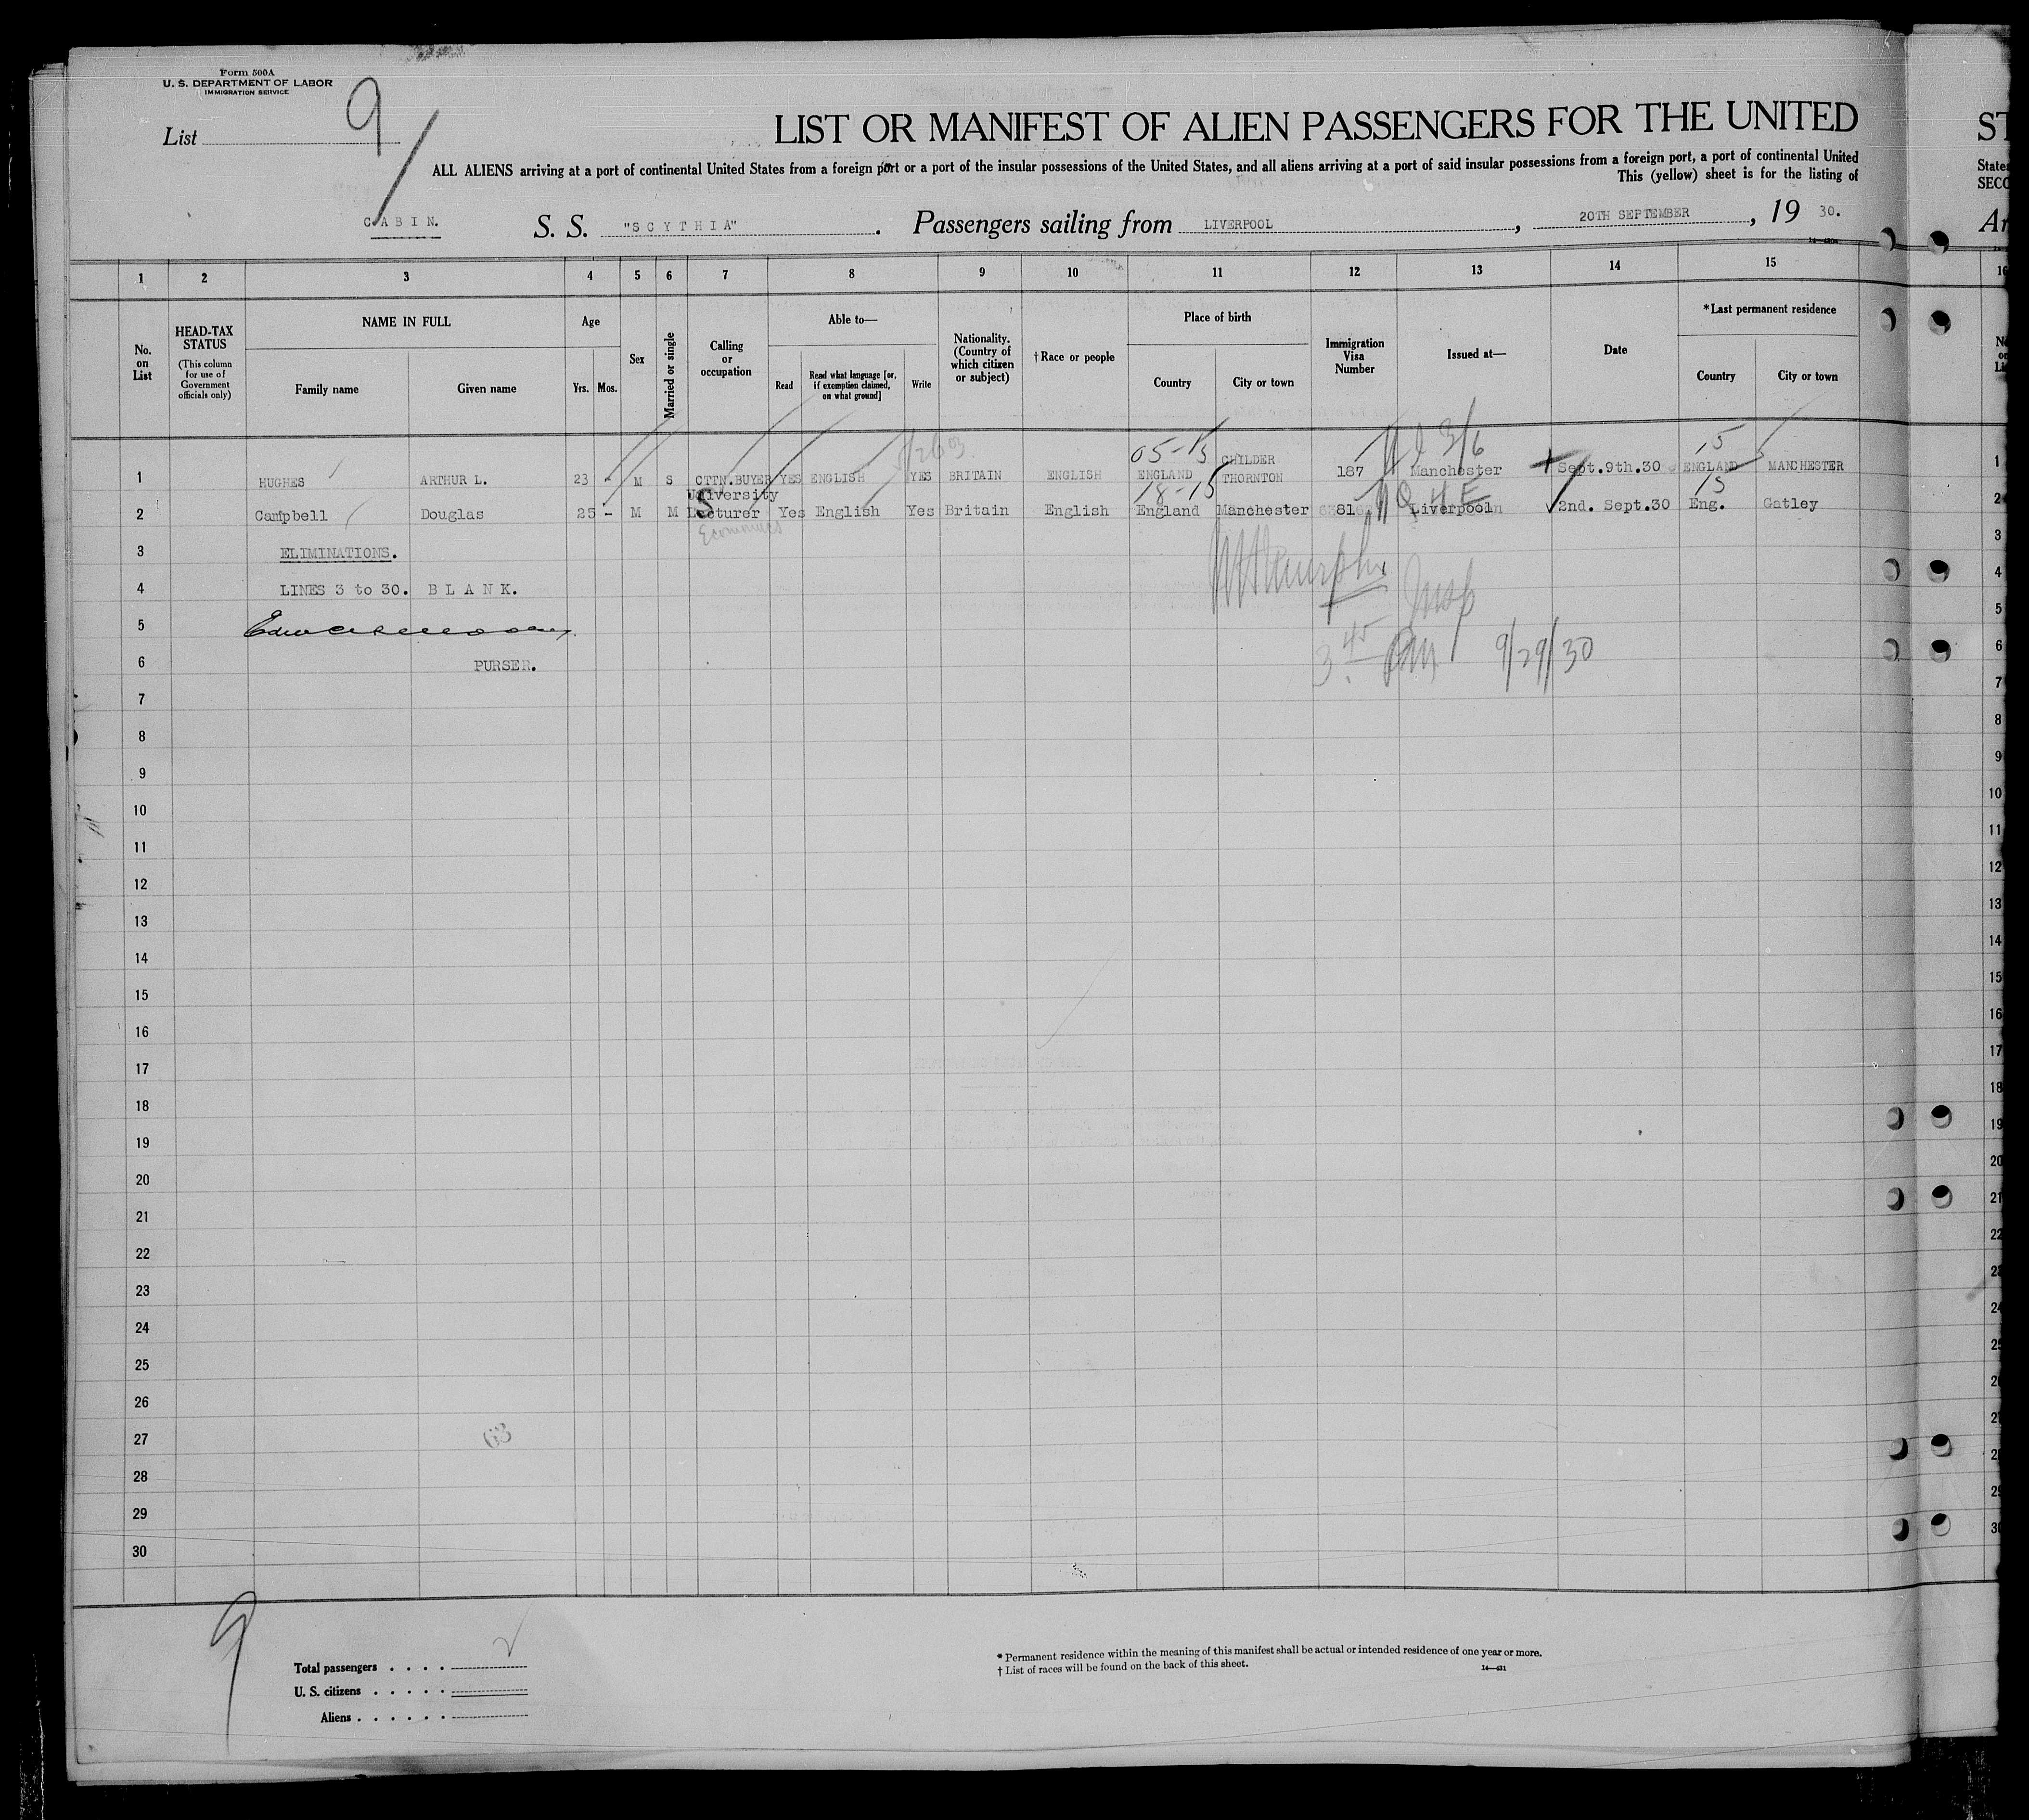 Form 500A
U. S. DEPARTMENT OF LABOR
IMMIGRATION SERVICE
List 9
LIST OR MANIFEST OF ALIEN PASSENGERS FOR THE UNITED
ALL ALIENS arriving at a port of continental United States from a foreign port or a port of the insular possessions of the United States, and all aliens arriving at a port of said insular possessions from a foreign port, a port of continental United
This (yellow) sheet is for the listing of
ST
States
SECO
CABIN. S. S. "SCYTHIA". Passengers sailing from LIVERPOOL, 20TH SEPTEMBER, 19 30.
Ar
1 2 3 4 5 6 7 8 9 10 11 12 13 14 15 16
No. on List
HEAD-TAX STATUS
(This column for use of Government officials only)
NAME IN FULL
Family name
Given name
Age
Yrs.
Mos.
Sex
Married or single
Calling or occupation
Able to—
Read
Read what language [or, if exemption claimed, on what ground]
Write
Nationality. (Country of which citizen or subject)
†Race or people
Place of birth
Country
City or town
Immigration Visa Number
Issued at—
Date
*Last permanent residence
Country
City or town
05-15
15
3/6
1 HUGHES ARTHUR L. 23 - M S CTTN.BUYER YES ENGLISH YES BRITAIN ENGLISH ENGLAND CHILDER THORNTON 187 Manchester Sept.9th.30 ENGLAND MANCHESTER 1
18-15
15
2 Campbell Douglas 25 - M M University Lecturer Yes English Yes Britain English England Manchester 81 Liverpool 2nd. Sept.30 Eng. Gatley 2
Economics
3 ELIMINATIONS. 3
4 LINES 3 to 30. BLANK. 4
Insp
5 5
3.45 PM 9/29/30
6 PURSER. 6
7 7
8 8
9 9
10 10
11 11
12 12
13 13
14 14
15 15
16 16
17 17
18 18
19 19
20 20
21 21
22 22
23 23
24 24
25 25
26 26
27 27
28 28
29 29
30 30
9
Total passengers . . . .
U. S. citizens . . . . .
Aliens . . . . . .
* Permanent residence within the meaning of this manifest shall be actual or intended residence of one year or more.
† List of races will be found on the back of this sheet.
14—421